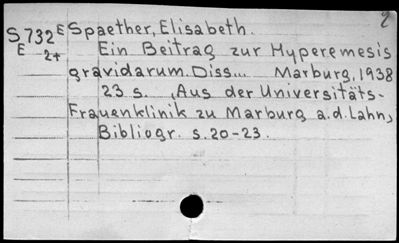 2
S732E Spaether, Elisabeth.
E 2+ Ein Beitrag zur Hyperemesis
gravidarum. Diss... Marburg, 1938
23 s. ,Aus der Universitäts-
Frauenklinik zu Marburg a.d. Lahn,
Bibliogr. s. 20-23.